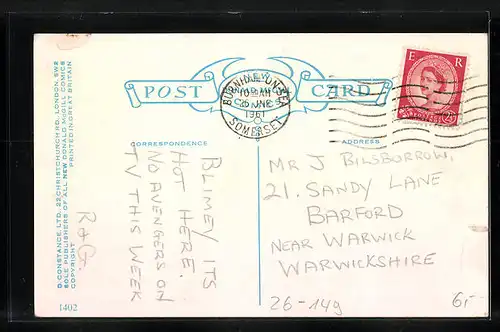 POST CARD
CORRESPONDENCE
ADDRESS
BLIMEY ITS
HOT HERE.
NO AVENGERS ON
TV THIS WEEK
MR J BILSBORROW,
21. SANDY LANE
BARFORD
NEAR WARWICK
WARWICKSHIRE
BURNHAM-ON-SEA
26 JNE
1961
SOMERSET
E R
D. CONSTANCE, LTD. 22 CHRISTCHURCH RD. LONDON, SW2
SOLE PUBLISHERS OF ALL NEW DONALD McGILL COMICS
COPYRIGHT
PRINTED IN GREAT BRITAIN
1402
26-149
6,-